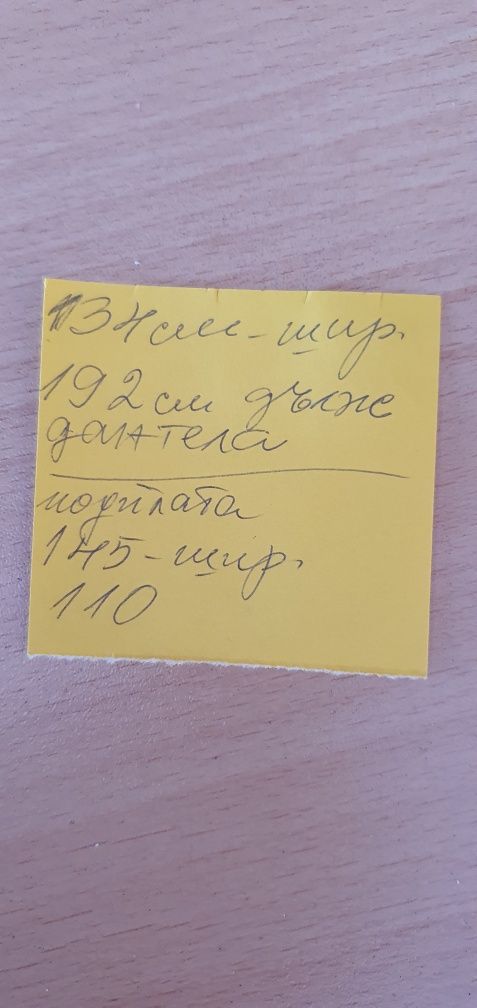 134 см - шир.
192 см дълж
дантела
подплата
145 - шир.
110